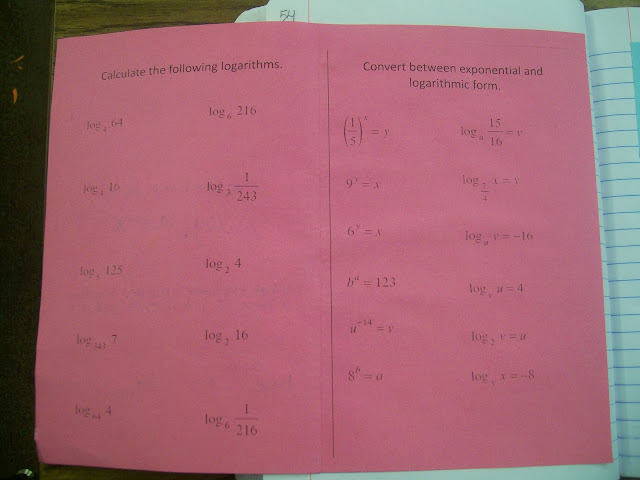 54
Calculate the following logarithms.
log₄ 64
log₆ 216
log₄ 16
log₃ 1/243
log₅ 125
log₂ 4
log₃₄₃ 7
log₂ 16
log₆₄ 4
log₆ 1/216
Convert between exponential and
logarithmic form.
(1/5)ˣ = y
15/16 = v
9ʸ = x
x = y
6ʸ = x
v = −16
bᵃ = 123
u = 4
u⁻¹⁴ = v
log₂ v = u
8ᵇ = a
x = −8